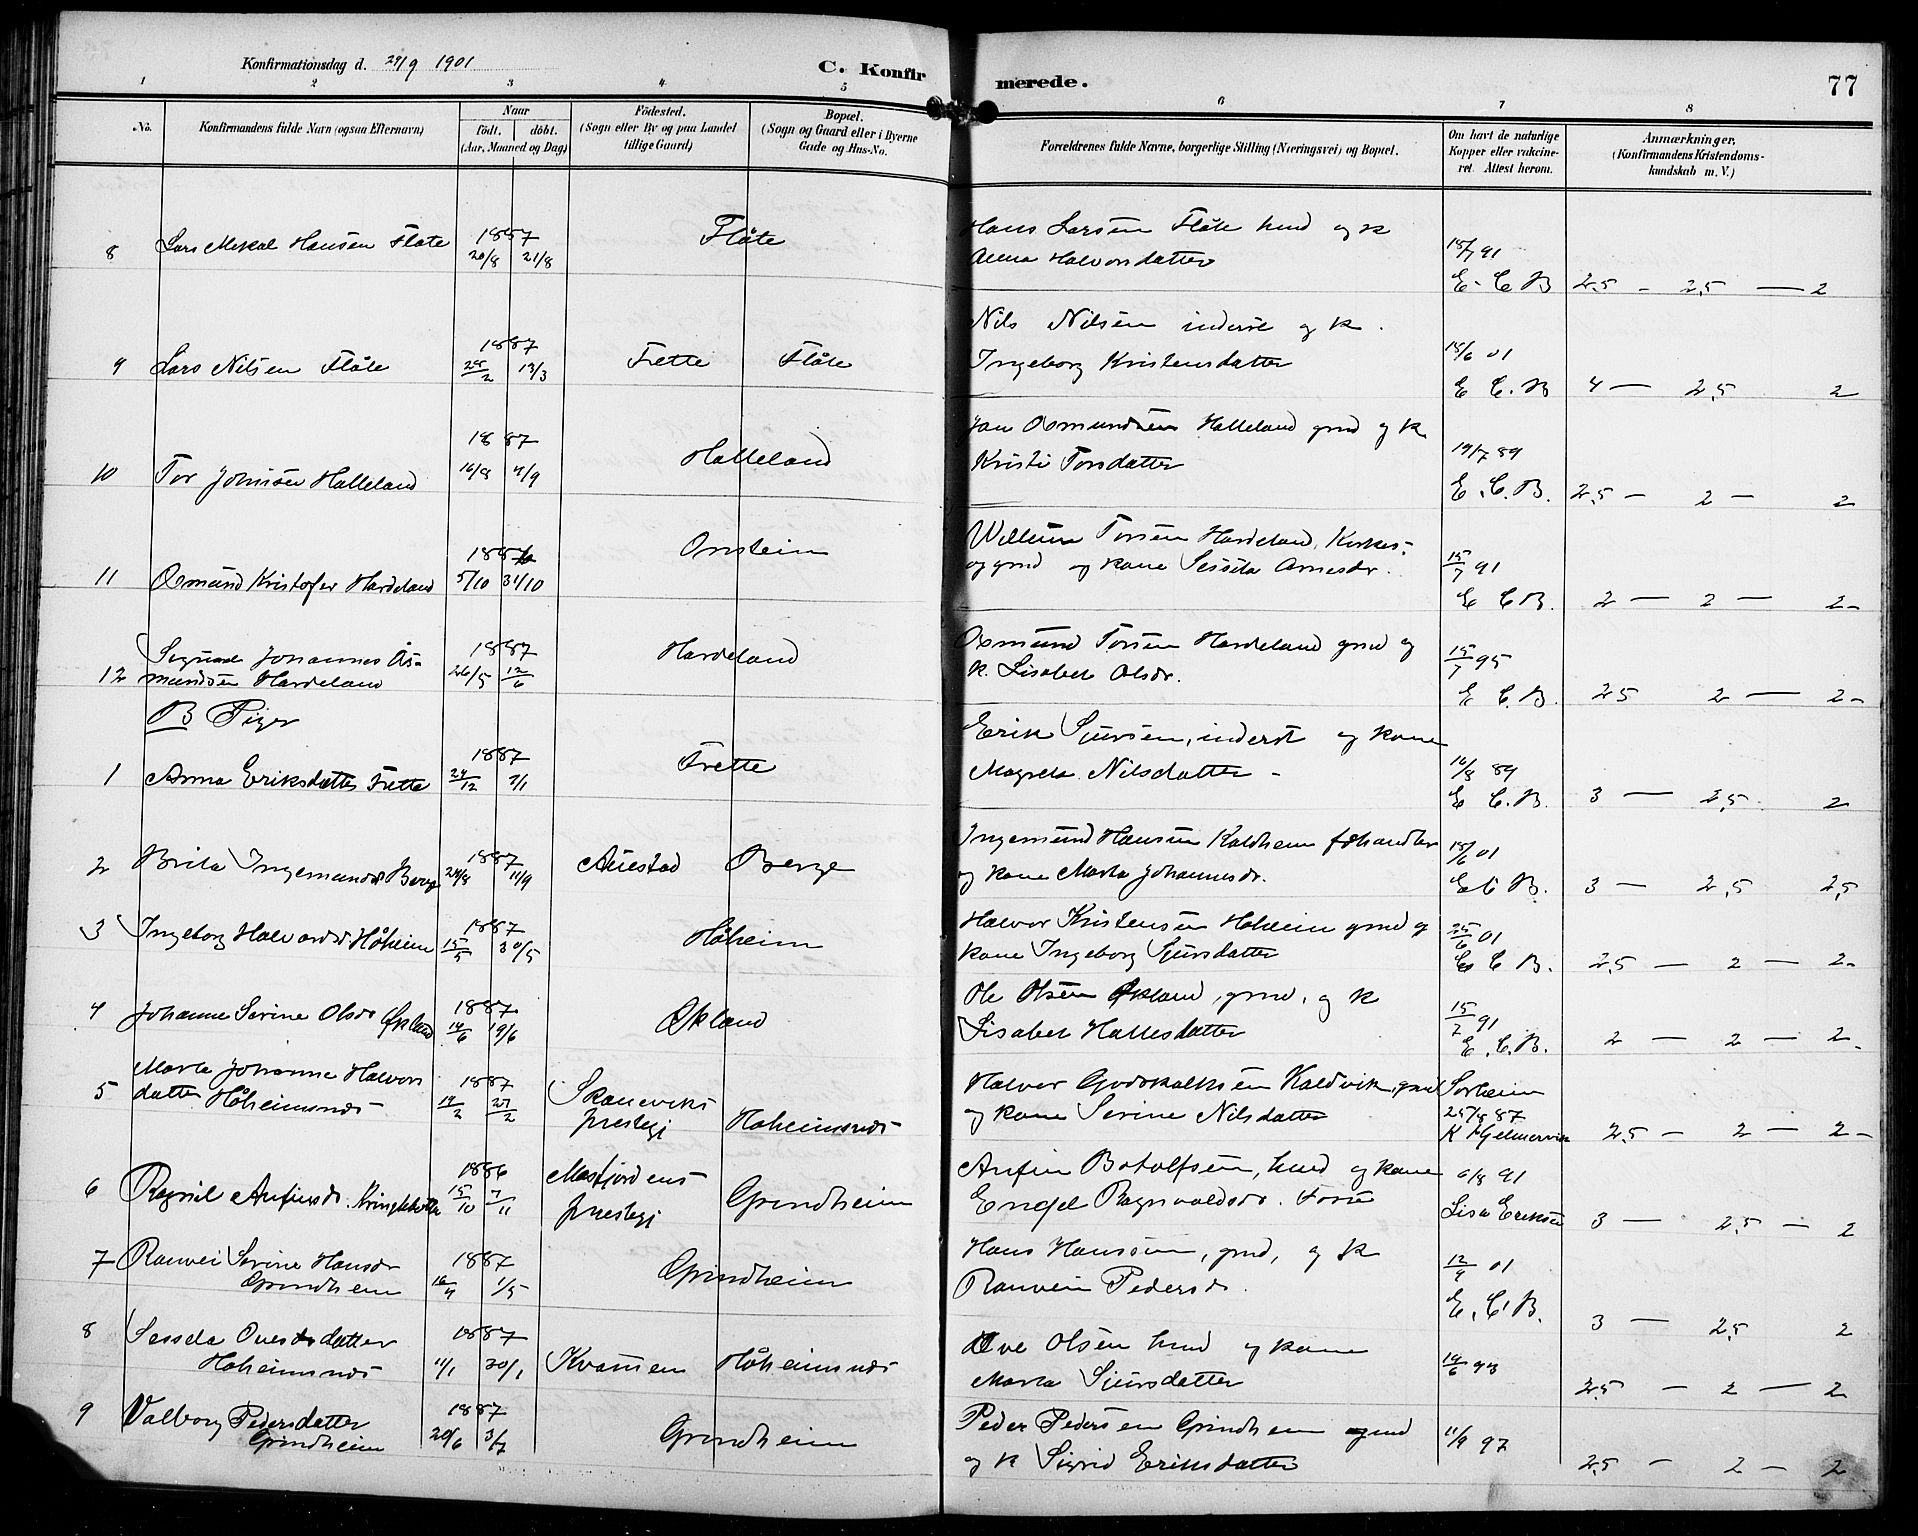 Konfirmationsdag d. 29/9 1901
C. Konfirmerede.
77
1 2 3 4 5 6 7 8
No.
Konfirmandens fulde Navn (ogsaa Efternavn)
Naar
födt. döbt.
(Aar, Maaned og Dag)
Födested.
(Sogn eller By og paa Landet tillige Gaard)
Bopæl.
(Sogn og Gaard eller i Byerne Gade og Hus-No.
Forældrenes fulde Navne, borgerlige Stilling (Næringsvei) og Bopæl.
Om havt de naturlige Kopper eller vakcineret. Attest herom.
Anmærkninger,
(Konfirmandens Kristendomskundskab m. V.)
8 Lars Mikal Hansen Flåte 1887 20/8 21/8 Flåte
Hans Larsen Flåte hmd og k
Anna Halvorsdatter 18/7 91 E. C B 2,5 - 2,5 — 2
9 Lars Nilsen Flåte 1887 28/2 13/3 Frette Flåte
Nils Nilsen inderst og k.
Ingeborg Kristensdatter 18/6 01 E C. B 4 — 2,5 2
10 Tor Johnsen Halleland 1887 16/8 4/9 Halleland
Jan Osmundsen Halleland gmd og k
Kristi Torsdatter 19/7 89 E. C. B. 2,5 — 2 — 2
11 Osmund Kristofer Hardeland 5/10 31/10 Onstein
Willum Torsen Hardeland, Kirkes-
og gmd og kone Sessela Arnesdr. 15/7 91 E C B. 2 — 2 — 2-
12 Sigurd Johannes Os-
mundsen Hardeland 1887 26/5 12/6 Hardeland
Osmund Torsen Hardeland gmd og
k. Lisabet Olsdr. 15/7 95 E C. B. 2,5 2 — 2-
B Piger
1 Anna Eriksdatter Frette 1887 24/12 7/1 Frette
Erik Sjursen, inderst og kone
Magrela Nilsdatter - 16/8 89 E C. B. 3 — 2,5 2
2 Brita Ingemundsdr Berge 1887 24/8 11/9 Auestad Berge
Ingemund Hansen Kaldheim fdhandler
og kone Marta Johannesdr. 18/6 01 E C B. 3 — 2,5 2,5
3 Ingeborg Halvorsdr Håheim 1887 15/5 30/5 Håheim
Halvor Kristensen Håheim gmd og
kone Ingeborg Sjursdatter 25/6 01 E C B. 2,5 — 2 — 2-
4 Johanne Serine Olsdr Økland 1887 14/6 19/6 Økland
Ole Olsen Økland, gmd, og k
Lisabet Hallesdatter 15/7 91 E. C. B. 2 — 2 — 2-
5 Marta Johanne Halvors
datter Håheimsnes 1887 14/2 27/2 Skaneviks
prestegj Håheimsnes
Halvor Godskalksen Kaldvik, gmd
og kone Serine Nilsdatter Sørheim
25/8 87
K Gjelmervik 2,5 — 2 — 2-
6 Ragnil Anfinsdr. Kringlebotn 1886 15/10 7/11 Masfjordens
prestegj Grindheim
Anfin Botolfsen, hmd og kone
Engel Ragnvaldsdr. 6/8 91
Lisa Eriksen 3 — 2,5 — 2
7 Ranvei Serine Hansdr
Grindheim 1887 16/4 1/5 Grindheim
Hans Hansen, gmd, og k
Ranvein Pedersdr. 12/9 01 E. C. B. 3 — 2,5 2
8 Sessela Ovesdatter
Håheimsnes 1887 11/1 30/1 Kvamen Håheimsnes
Ove Olsen hmd og kone
Marta Sjursdatter 19/6 93 2,5 — 2 — 2
9 Valborg Pedersdatter
Grindheim 1887 20/6 3/7 Grindheim
Peder Pedersen Grindheim gmd
og k Sigrid Eriksdatter 11/9 97 2,5 — 2 — 2